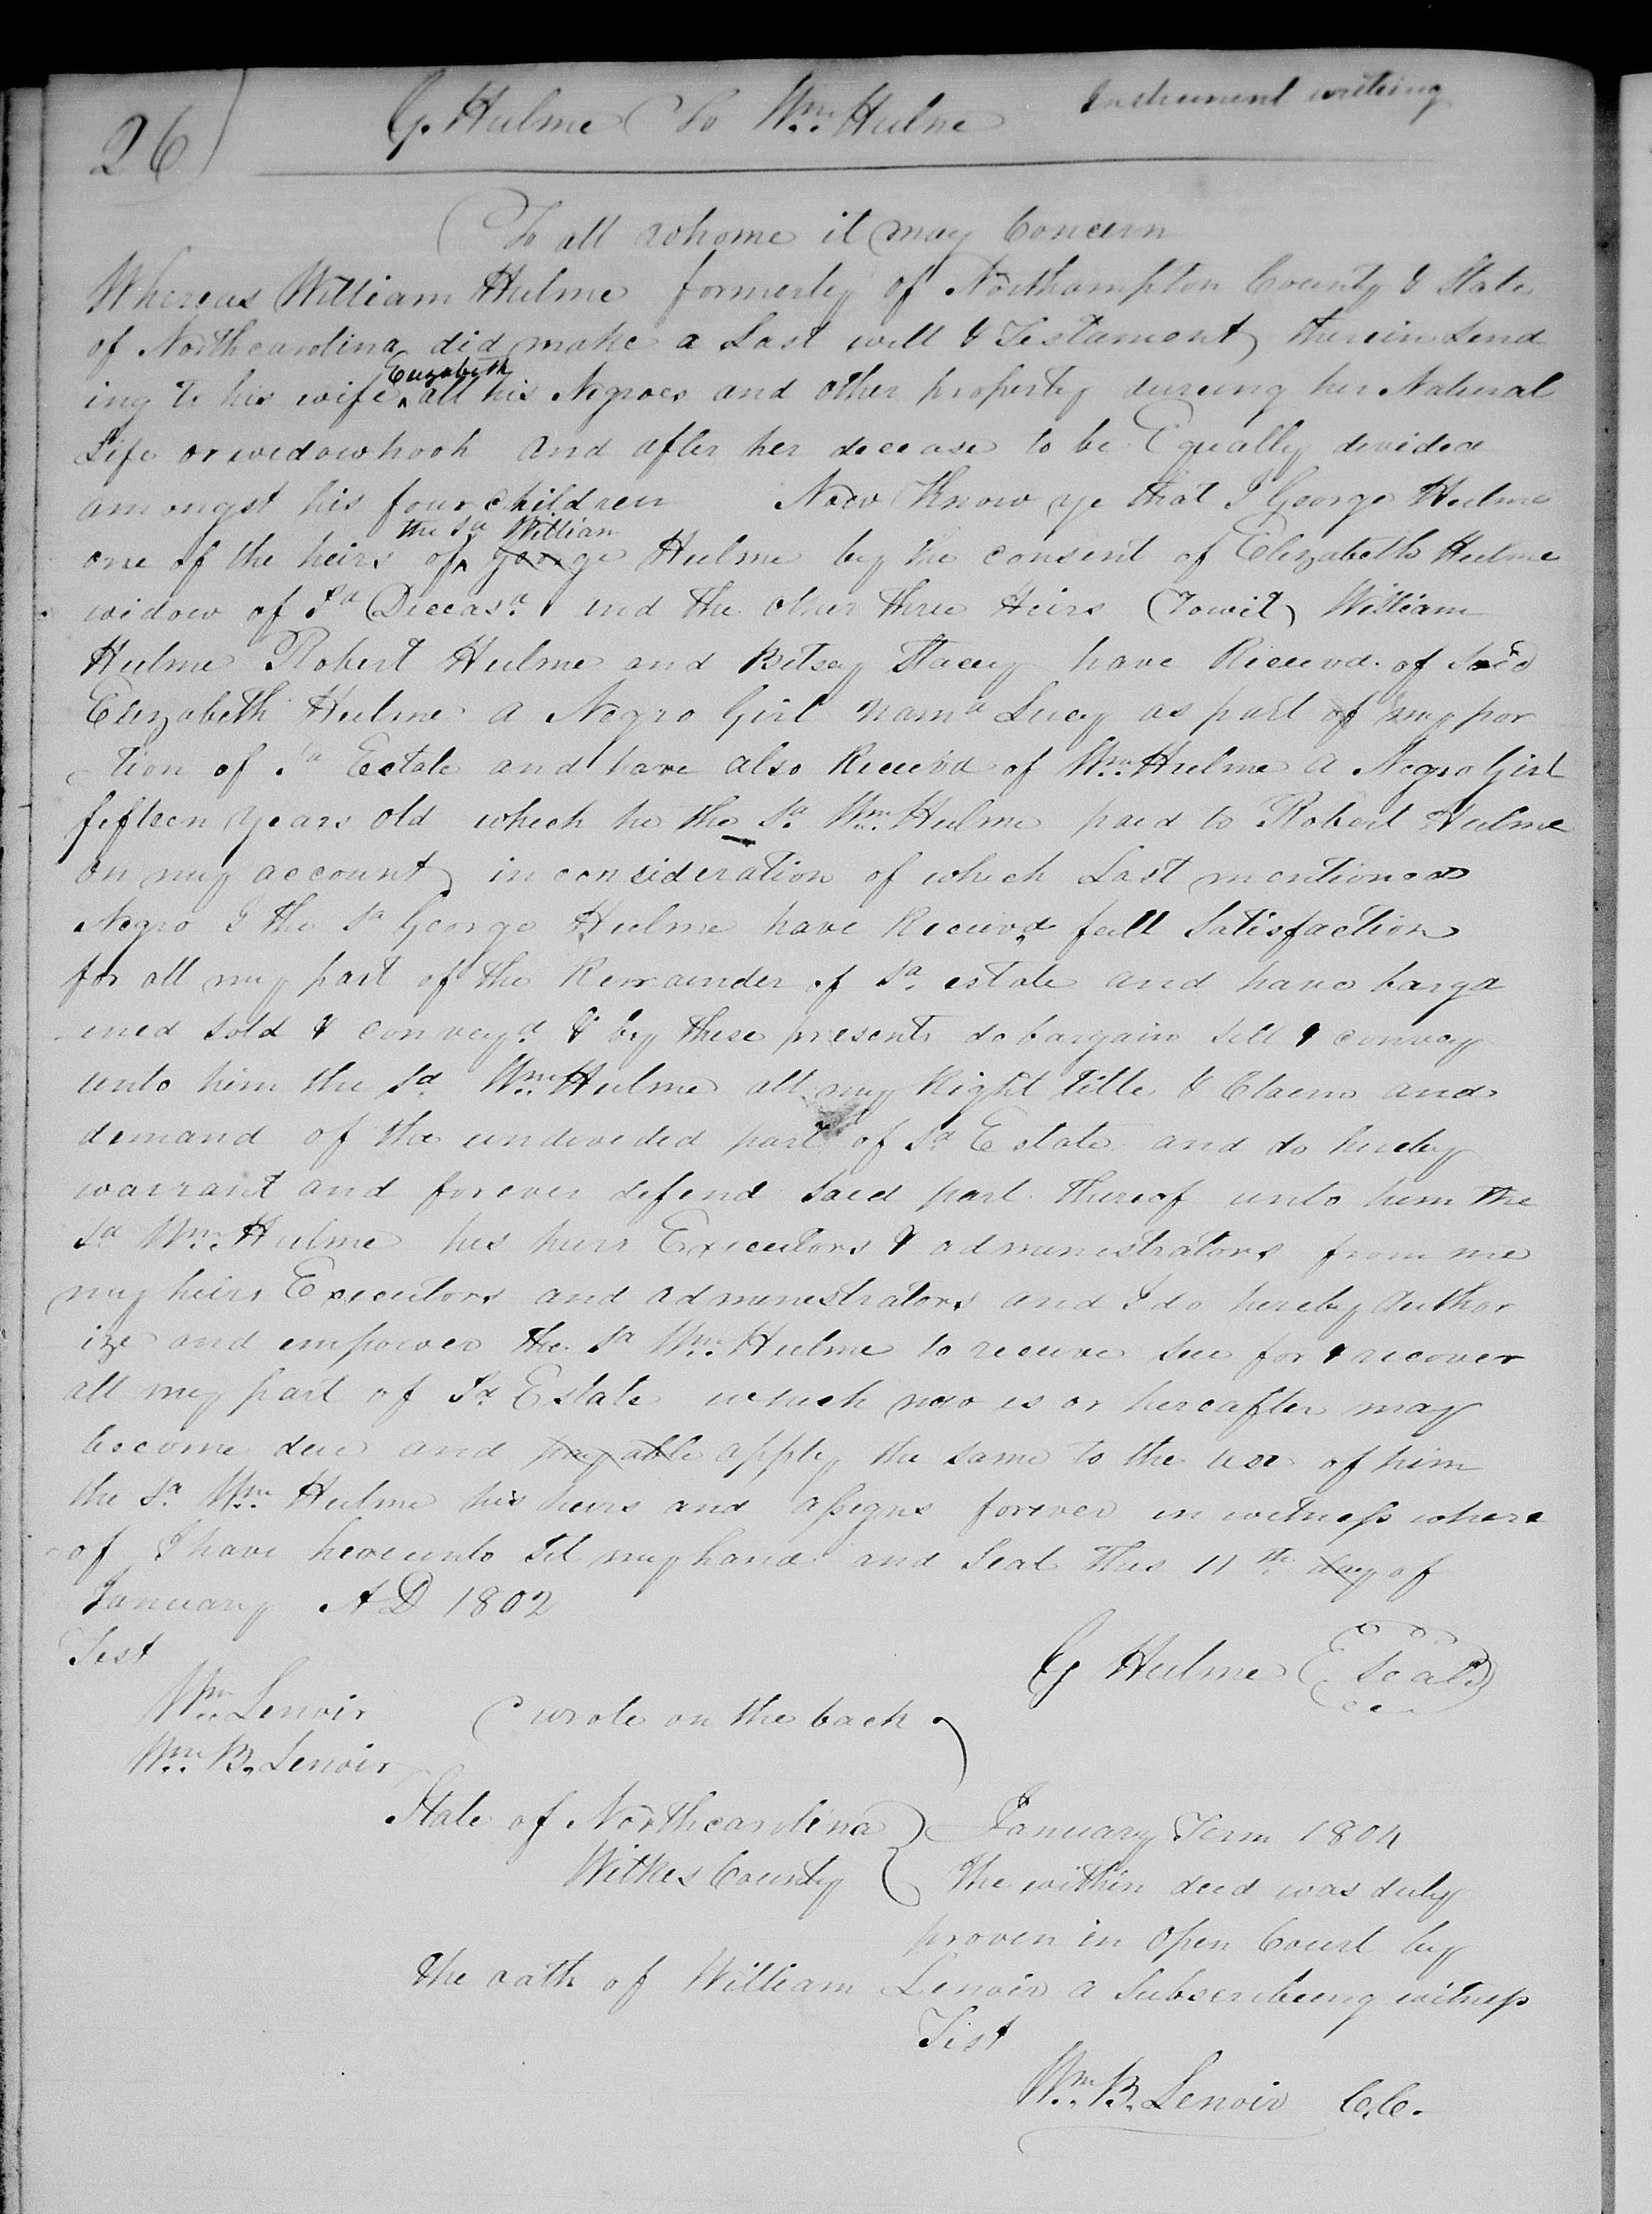 26)
G. Hulme To Wm. Hulme Instrument writing
To all whome it may Concern
Whereas William Hulme formerly of Northampton County & State
of Northcarolina did make a Last will & Testament therein Lend
ing to his wife Elizabeth all his Negroes and other property dureing her Natural
Life or widowhooh and after her decease to be Equally devided
amongst his four children Now Know ye that I George Hulme
one of the heirs of the sd William George Hulme by the consent of Elizabeth Hulme
widow of Sd Deceasd. and the other three Heirs (Towit) William
Hulme Robert Hulme and Betsey Stacey have Receivd. of said
Elizabeth Hulme a Negro Girl namd Lucy as part of my por
tion of sd Estate and have also Receivd of Wm. Hulme a Negro Girl
fifteen years old which he the sd. Wm. Hulme paid to Robert Hulme
on my account in consideration of which Last mentioned
Negro I the sd George Hulme have Receivd full Satisfaction
for all my part of the Remainder of sd. estate and have barga
ined sold & conveyd. & by these presents do bargain sell & convey
unto him the sd. Wm. Hulme all my Right title & Claem and
demand of the undevided part of sd Estate and do hereby
warrant and forever defend said part thereof unto him the
sd Wm. Hulme his heirs Executors & administrators from me
my heirs Executors and administrators and I do hereby Author
ize and empower the sd Wm. Hulme to receive sue for & recover
all my part of Sd Estate which now is or hereafter may
become due and payable apply the same to the use of him
the sd. Wm. Hulme his heirs and assigns forever in witness where
of I have hereunto Set my hand and Seal this 11th. day of
January A D 1802
Test
G Hulme (Seal)
Wm. Lenoir
(wrote on the back)
Wm. B. Lenoir
State of Northcarolina } January Term 1804
Wilkes County } The within deed was duly
proven in Open Court by
the oath of William Lenoir a Subscribeing witness
Test
Wm. B. Lenoir C.C.